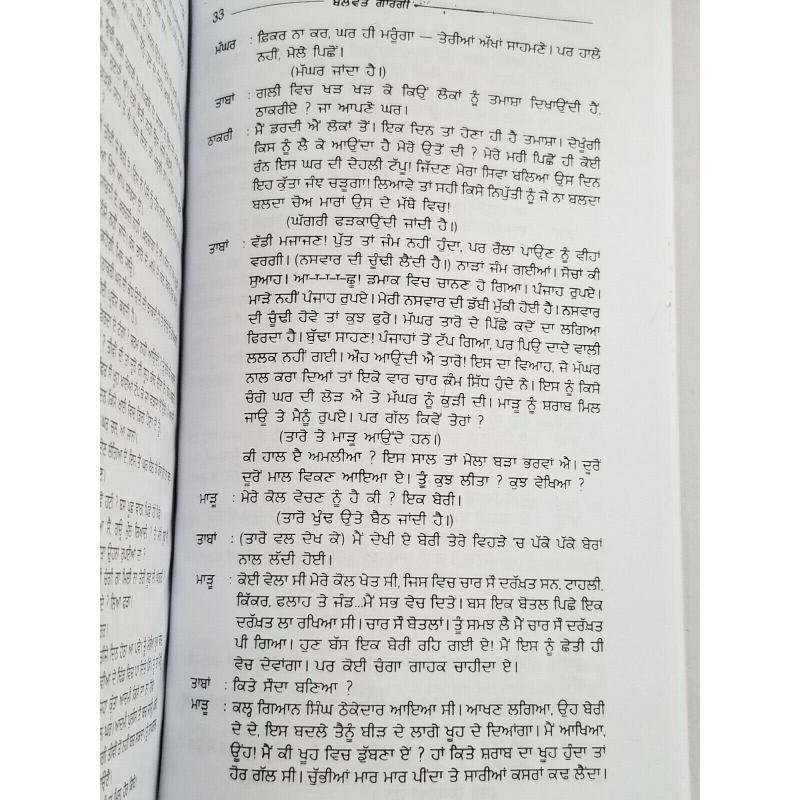 33 ਬਲਵੰਤ ਗਾਰਗੀ
ਮੱਘਰ : ਫ਼ਿਕਰ ਨਾ ਕਰ, ਘਰ ਹੀ ਮਰੂੰਗਾ — ਤੇਰੀਆਂ ਅੱਖਾਂ ਸਾਹਮਣੇ। ਪਰ ਹਾਲੇ
ਨਹੀਂ, ਮੇਲੇ ਪਿਛੋਂ।
(ਮੱਘਰ ਜਾਂਦਾ ਹੈ।)
ਤਾਬਾਂ : ਗਲੀ ਵਿਚ ਖੜ ਖੜ ਕੇ ਕਿਉਂ ਲੋਕਾਂ ਨੂੰ ਤਮਾਸ਼ਾ ਦਿਖਾਉਂਦੀ ਹੈਂ,
ਠਾਕਰੀਏ ? ਜਾ ਆਪਣੇ ਘਰ।
ਠਾਕਰੀ : ਮੈਂ ਡਰਦੀ ਐਂ ਲੋਕਾਂ ਤੋਂ। ਇਕ ਦਿਨ ਤਾਂ ਹੋਣਾ ਹੀ ਹੈ ਤਮਾਸ਼ਾ। ਦੇਖੂੰਗੀ
ਕਿਸ ਨੂੰ ਲੈ ਕੇ ਆਉਂਦਾ ਹੈ ਮੇਰੇ ਉਤੋਂ ਦੀ ? ਮੇਰੇ ਮਰੀ ਪਿਛੋਂ ਹੀ ਕੋਈ
ਰੰਨ ਇਸ ਘਰ ਦੀ ਦੇਹਲੀ ਟੱਪੂ! ਜਿੱਦਣ ਮੇਰਾ ਸਿਵਾ ਬਲਿਆ ਉਸ ਦਿਨ
ਇਹ ਕੁੱਤਾ ਜੰਞ ਚੜ੍ਹੂਗਾ! ਲਿਆਵੇ ਤਾਂ ਸਹੀ ਕਿਸੇ ਨਿਪੁੱਤੀ ਨੂੰ ਜੇ ਨਾ ਬਲਦਾ
ਬਲਦਾ ਚੋਅ ਮਾਰਾਂ ਉਸ ਦੇ ਮੱਥੇ ਵਿਚ!
(ਘੱਗਰੀ ਫੜਕਾਉਂਦੀ ਜਾਂਦੀ ਹੈ।)
ਤਾਬਾਂ : ਵੱਡੀ ਮਜਾਜਣ! ਪੁੱਤ ਤਾਂ ਜੰਮ ਨਹੀਂ ਹੁੰਦਾ, ਪਰ ਰੌਲਾ ਪਾਉਣ ਨੂੰ ਵੀਹਾਂ
ਵਰਗੀ। (ਨਸਵਾਰ ਦੀ ਚੂੰਢੀ ਲੈਂਦੀ ਹੈ।) ਨਾੜਾਂ ਜੰਮ ਗਈਆਂ। ਸੋਚਾਂ ਕੀ
ਸੁਆਹ। ਆ-ਾ-ਾ-ਾ-ਛੂ! ਡਮਾਕ ਵਿਚ ਚਾਨਣ ਹੋ ਗਿਆ। ਪੰਜਾਹ ਰੁਪਏ।
ਮਾੜੇ ਨਹੀਂ ਪੰਜਾਹ ਰੁਪਏ। ਮੇਰੀ ਨਸਵਾਰ ਦੀ ਡੱਬੀ ਮੁੱਕੀ ਹੋਈ ਹੈ। ਨਸਵਾਰ
ਦੀ ਚੂੰਢੀ ਹੋਵੇ ਤਾਂ ਕੁਝ ਫੁਰੇ। ਮੱਘਰ ਤਾਰੋ ਦੇ ਪਿੱਛੇ ਕਦੋਂ ਦਾ ਲਗਿਆ
ਫਿਰਦਾ ਹੈ। ਬੁੱਢਾ ਸਾਹਣ! ਪੰਜਾਹਾਂ ਤੋਂ ਟੱਪ ਗਿਆ, ਪਰ ਪਿਉ ਦਾਦੇ ਵਾਲੀ
ਲਲਕ ਨਹੀਂ ਗਈ। ਔਹ ਆਉਂਦੀ ਐ ਤਾਰੋ! ਇਸ ਦਾ ਵਿਆਹ, ਜੇ ਮੱਘਰ
ਨਾਲ ਕਰਾ ਦਿਆਂ ਤਾਂ ਇਕੋ ਵਾਰ ਚਾਰ ਕੰਮ ਸਿੱਧ ਹੁੰਦੇ ਨੇ। ਇਸ ਨੂੰ ਕਿਸੇ
ਚੰਗੇ ਘਰ ਦੀ ਲੋੜ ਐ ਤੇ ਮੱਘਰ ਨੂੰ ਕੁੜੀ ਦੀ। ਮਾੜੂ ਨੂੰ ਸ਼ਰਾਬ ਮਿਲ
ਜਾਊ ਤੇ ਮੈਨੂੰ ਰੁਪਏ। ਪਰ ਗੱਲ ਕਿਵੇਂ ਤੋਰਾਂ ?
(ਤਾਰੋ ਤੇ ਮਾੜੂ ਆਉਂਦੇ ਹਨ।)
ਕੀ ਹਾਲ ਏ ਅਮਲੀਆ ? ਇਸ ਸਾਲ ਤਾਂ ਮੇਲਾ ਬੜਾ ਭਰਵਾਂ ਐ। ਦੂਰੋਂ
ਦੂਰੋਂ ਮਾਲ ਵਿਕਣ ਆਇਆ ਏ। ਤੂੰ ਕੁਝ ਲੀਤਾ ? ਕੁਝ ਵੇਖਿਆ ?
ਮਾੜੂ : ਮੇਰੇ ਕੋਲ ਵੇਚਣ ਨੂੰ ਹੈ ਕੀ ? ਇਕ ਬੇਰੀ।
(ਤਾਰੋ ਖੁੰਢ ਉਤੇ ਬੈਠ ਜਾਂਦੀ ਹੈ।)
ਤਾਬਾਂ : (ਤਾਰੋ ਵਲ ਦੇਖ ਕੇ) ਮੈਂ ਦੇਖੀ ਏ ਬੇਰੀ ਤੇਰੇ ਵਿਹੜੇ 'ਚ ਪੱਕੇ ਪੱਕੇ ਬੇਰਾਂ
ਨਾਲ ਲੱਦੀ ਹੋਈ।
ਮਾੜੂ : ਕੋਈ ਵੇਲਾ ਸੀ ਮੇਰੇ ਕੋਲ ਖੇਤ ਸੀ, ਜਿਸ ਵਿਚ ਚਾਰ ਸੌ ਦਰੱਖ਼ਤ ਸਨ, ਟਾਹਲੀ,
ਕਿੱਕਰ, ਫਲਾਹ ਤੇ ਜੰਡ...ਮੈਂ ਸਭ ਵੇਚ ਦਿਤੇ। ਬਸ ਇਕ ਬੋਤਲ ਪਿਛੇ ਇਕ
ਦਰੱਖ਼ਤ ਲਾ ਰਖਿਆ ਸੀ। ਚਾਰ ਸੌ ਬੋਤਲਾਂ। ਤੂੰ ਸਮਝ ਲੈ ਮੈਂ ਚਾਰ ਸੌ ਦਰੱਖ਼ਤ
ਪੀ ਗਿਆ। ਹੁਣ ਬੱਸ ਇਕ ਬੇਰੀ ਰਹਿ ਗਈ ਏ! ਮੈਂ ਇਸ ਨੂੰ ਛੇਤੀ ਹੀ
ਵੇਚ ਦੇਵਾਂਗਾ। ਪਰ ਕੋਈ ਚੰਗਾ ਗਾਹਕ ਚਾਹੀਦਾ ਏ।
ਤਾਬਾਂ : ਕਿਤੇ ਸੌਦਾ ਬਣਿਆ ?
ਮਾੜੂ : ਕਲ੍ਹ ਗਿਆਨ ਸਿੰਘ ਠੇਕੇਦਾਰ ਆਇਆ ਸੀ। ਆਖਣ ਲਗਿਆ, ਉਹ ਬੇਰੀ
ਦੇ ਦੇ, ਇਸ ਬਦਲੇ ਤੈਨੂੰ ਬੀੜ ਦੇ ਲਾਗੇ ਖੂਹ ਦੇ ਦਿਆਂਗਾ। ਮੈਂ ਆਖਿਆ,
ਊਂਹਾ! ਮੈਂ ਕੀ ਖੂਹ ਵਿਚ ਡੁੱਬਣਾ ਏਂ ? ਹਾਂ ਕਿਤੇ ਸ਼ਰਾਬ ਦਾ ਖੂਹ ਹੁੰਦਾ ਤਾਂ
ਹੋਰ ਗੱਲ ਸੀ। ਚੁੱਭੀਆਂ ਮਾਰ ਮਾਰ ਪੀਂਦਾ ਤੇ ਸਾਰੀਆਂ ਕਸਰਾਂ ਕਢ ਲੈਂਦਾ।